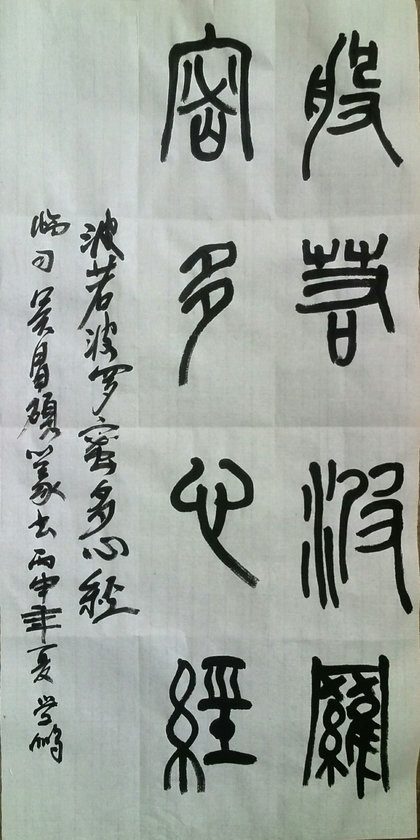 般若波羅
密多心經
波若波罗蜜多心经
临习吴昌硕篆书丙申年夏学鹏